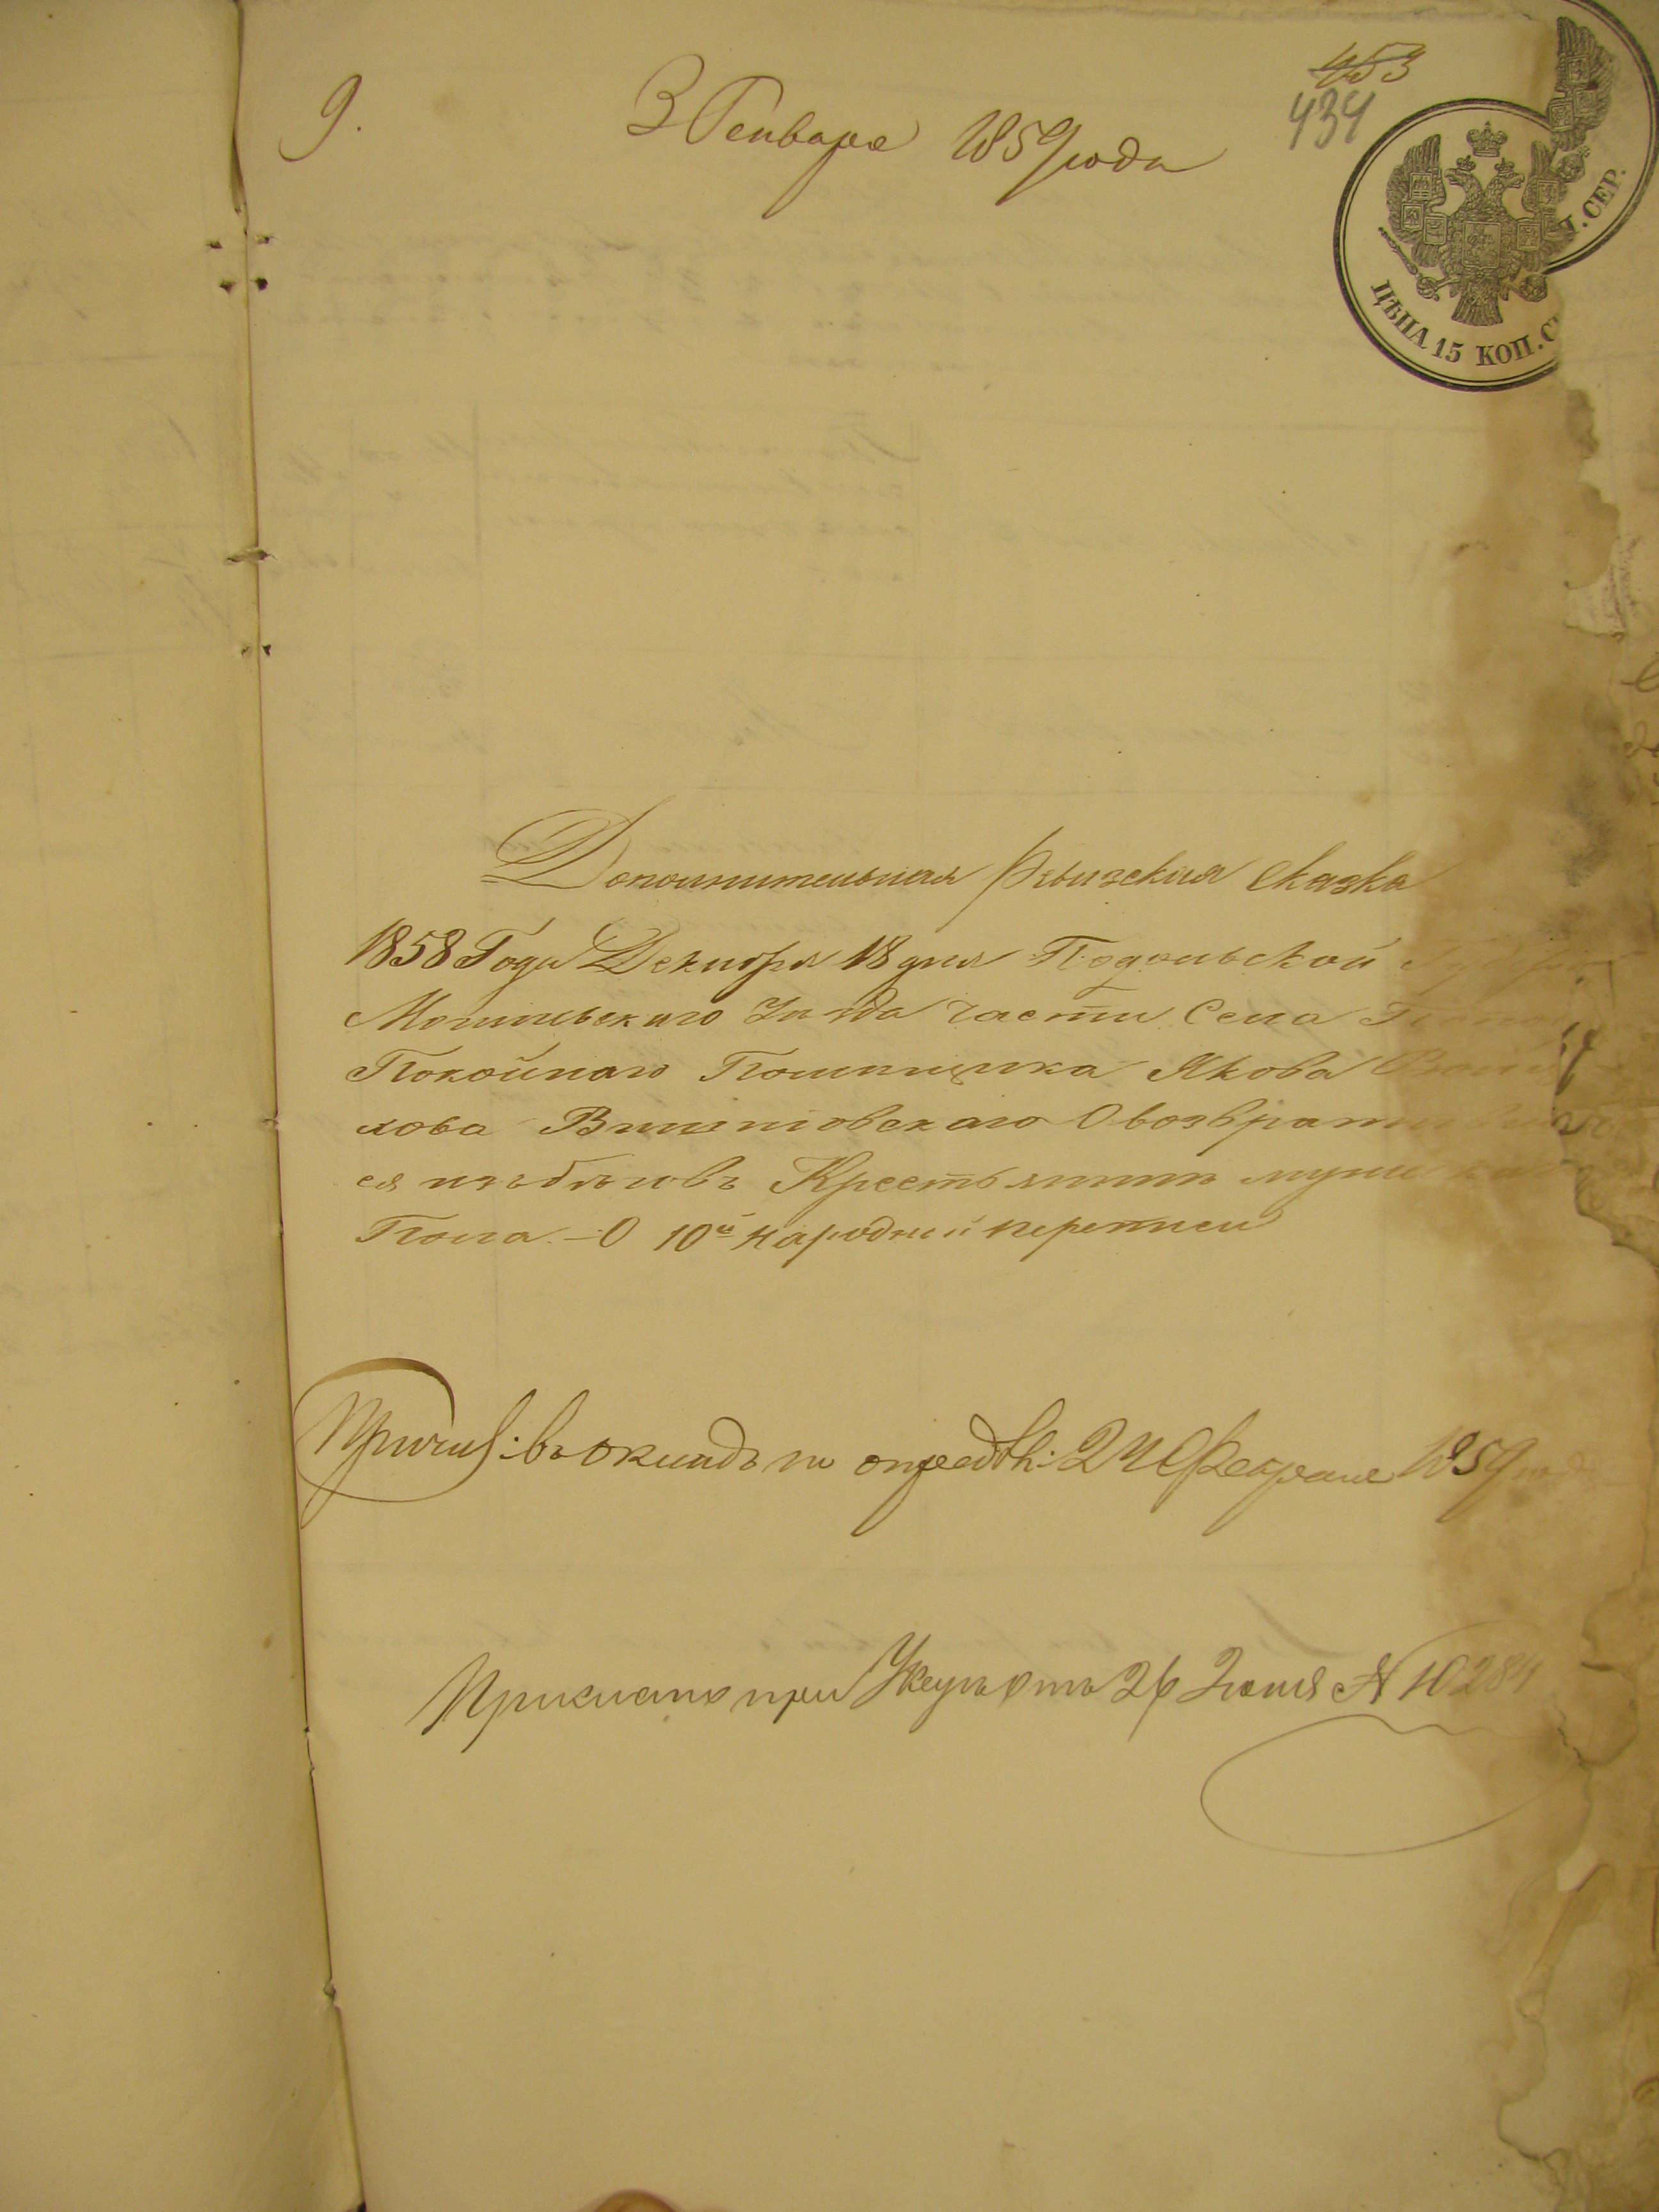 9.
3 Генваря 1859 года
453
434
ЦѢНА 15 КОП. С
. СЕР.
Дополнительная Ревизская Сказка
1858 Года Декабря 18 дня Подольской
Могилевскаго Уѣзда части Села
Покойнаго Помѣщика Якова
кова О возврати
ся изъ бѣговъ Крестьянинѣ муж
Пола. – О 10й народной переписи
Причис: въ окладъ по опредѣл: 24 Февраля 1859 года
Прислано при Указѣ отъ 26 Іюня № 10284